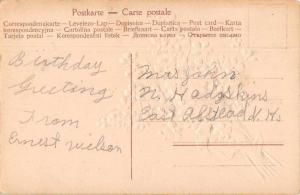 Postkarte — Carte postale
Correspondenzkarte — Levelezo-Lap — Dopisnice — Dopisnica — Post card — Karta
korespondencyjna — Cartolina postale — Briefkaart — Brefkort —
Tarjeta postal — Korespondenční listek —
Birthday
Greeting
From
Ernest Nelson
Mrs John
N. Hodgskins
East Alstead N. H.